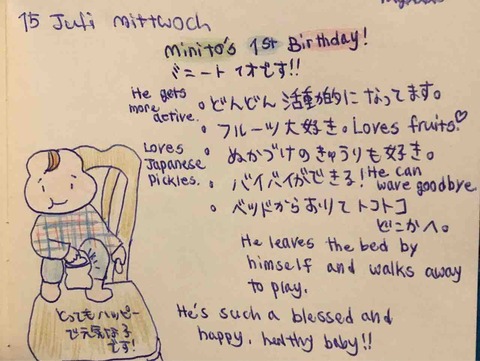 15 Juli Mittwoch
minito's 1st Birthday!
ミニート 1才です!!
He gets
more
active.
• どんどん 活動的に なってます。
• フルーツ大好き。Loves fruits.♡
Loves
Japanese
Pickles.
• ぬかづけのきゅうりも好き。
• バイバイができる! He can
wave goodbye.
• ベッドからおりて トコトコ
どこかへ。
He leaves the bed by
himself and walks away
to play.
He's such a blessed and
happy, healthy baby!!
とってもハッピー
で元気な子
です!